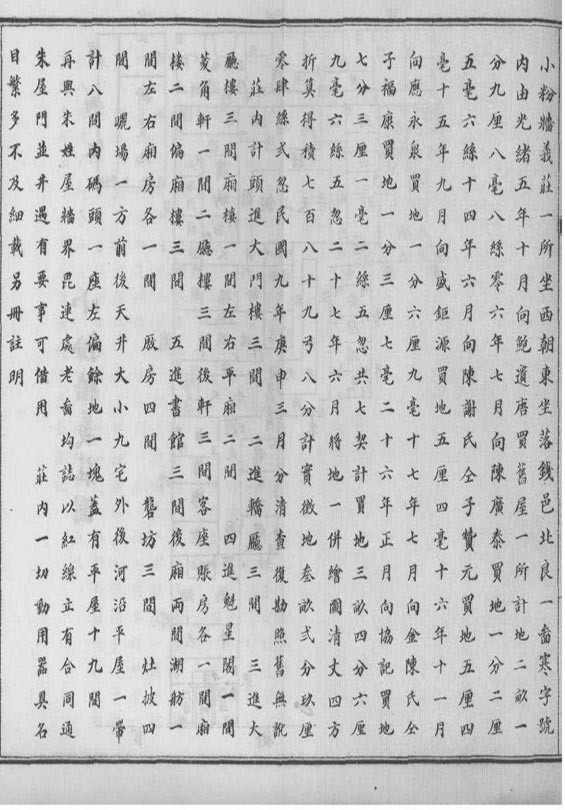 小粉牆義莊一所坐西朝東坐落錢邑北良一啚寒字號
內由光緒五年十月向鮑道唐買舊屋一所計地二畝一
分九厘八毫八絲零六年七月向陳廣泰買地一分二厘
五毫六絲十四年六月向陳謝氏仝子贊元買地五厘四
毫十五年九月向盛鉅源買地五厘四毫十六年十一月
向應永泉買地一分六厘九毫十七年七月向金陳氏仝
子福康買地一分三厘七毫二十六年正月向協記買地
七分三厘一毫二絲五忽共七契計買地三畝四分六厘
九毫六絲五忽二十七年六月將地一併繪圖清丈四方
折算得積七百八十九弓八分計實徵地叁畝弍分玖厘
零肆絲弍忽民國九年庚申三月分清查復勘照舊無訛
莊內計頭進大門樓三間 二進轎廳三間 三進大
廳樓三間廂樓一間左右平廂二間 四進魁星閣一間
菱角軒一間二廳樓三間後軒三間客座賬房各一間廂
樓二間偏廂樓三間 五進書館三間後廂兩間潮舫一
間左右廂房各一間 廒房四間 礱坊三間 灶披四
間 曬場一方前後天井大小九宅外後河沿平屋一帶
計八間內碼頭一座左偏餘地一塊蓋有平屋十九間
再與朱姓屋牆界毘連處老啚均誌以紅線立有合同通
朱屋門並井遇有要事可借用 莊內一切動用器具名
目繁多不及細載另冊註明